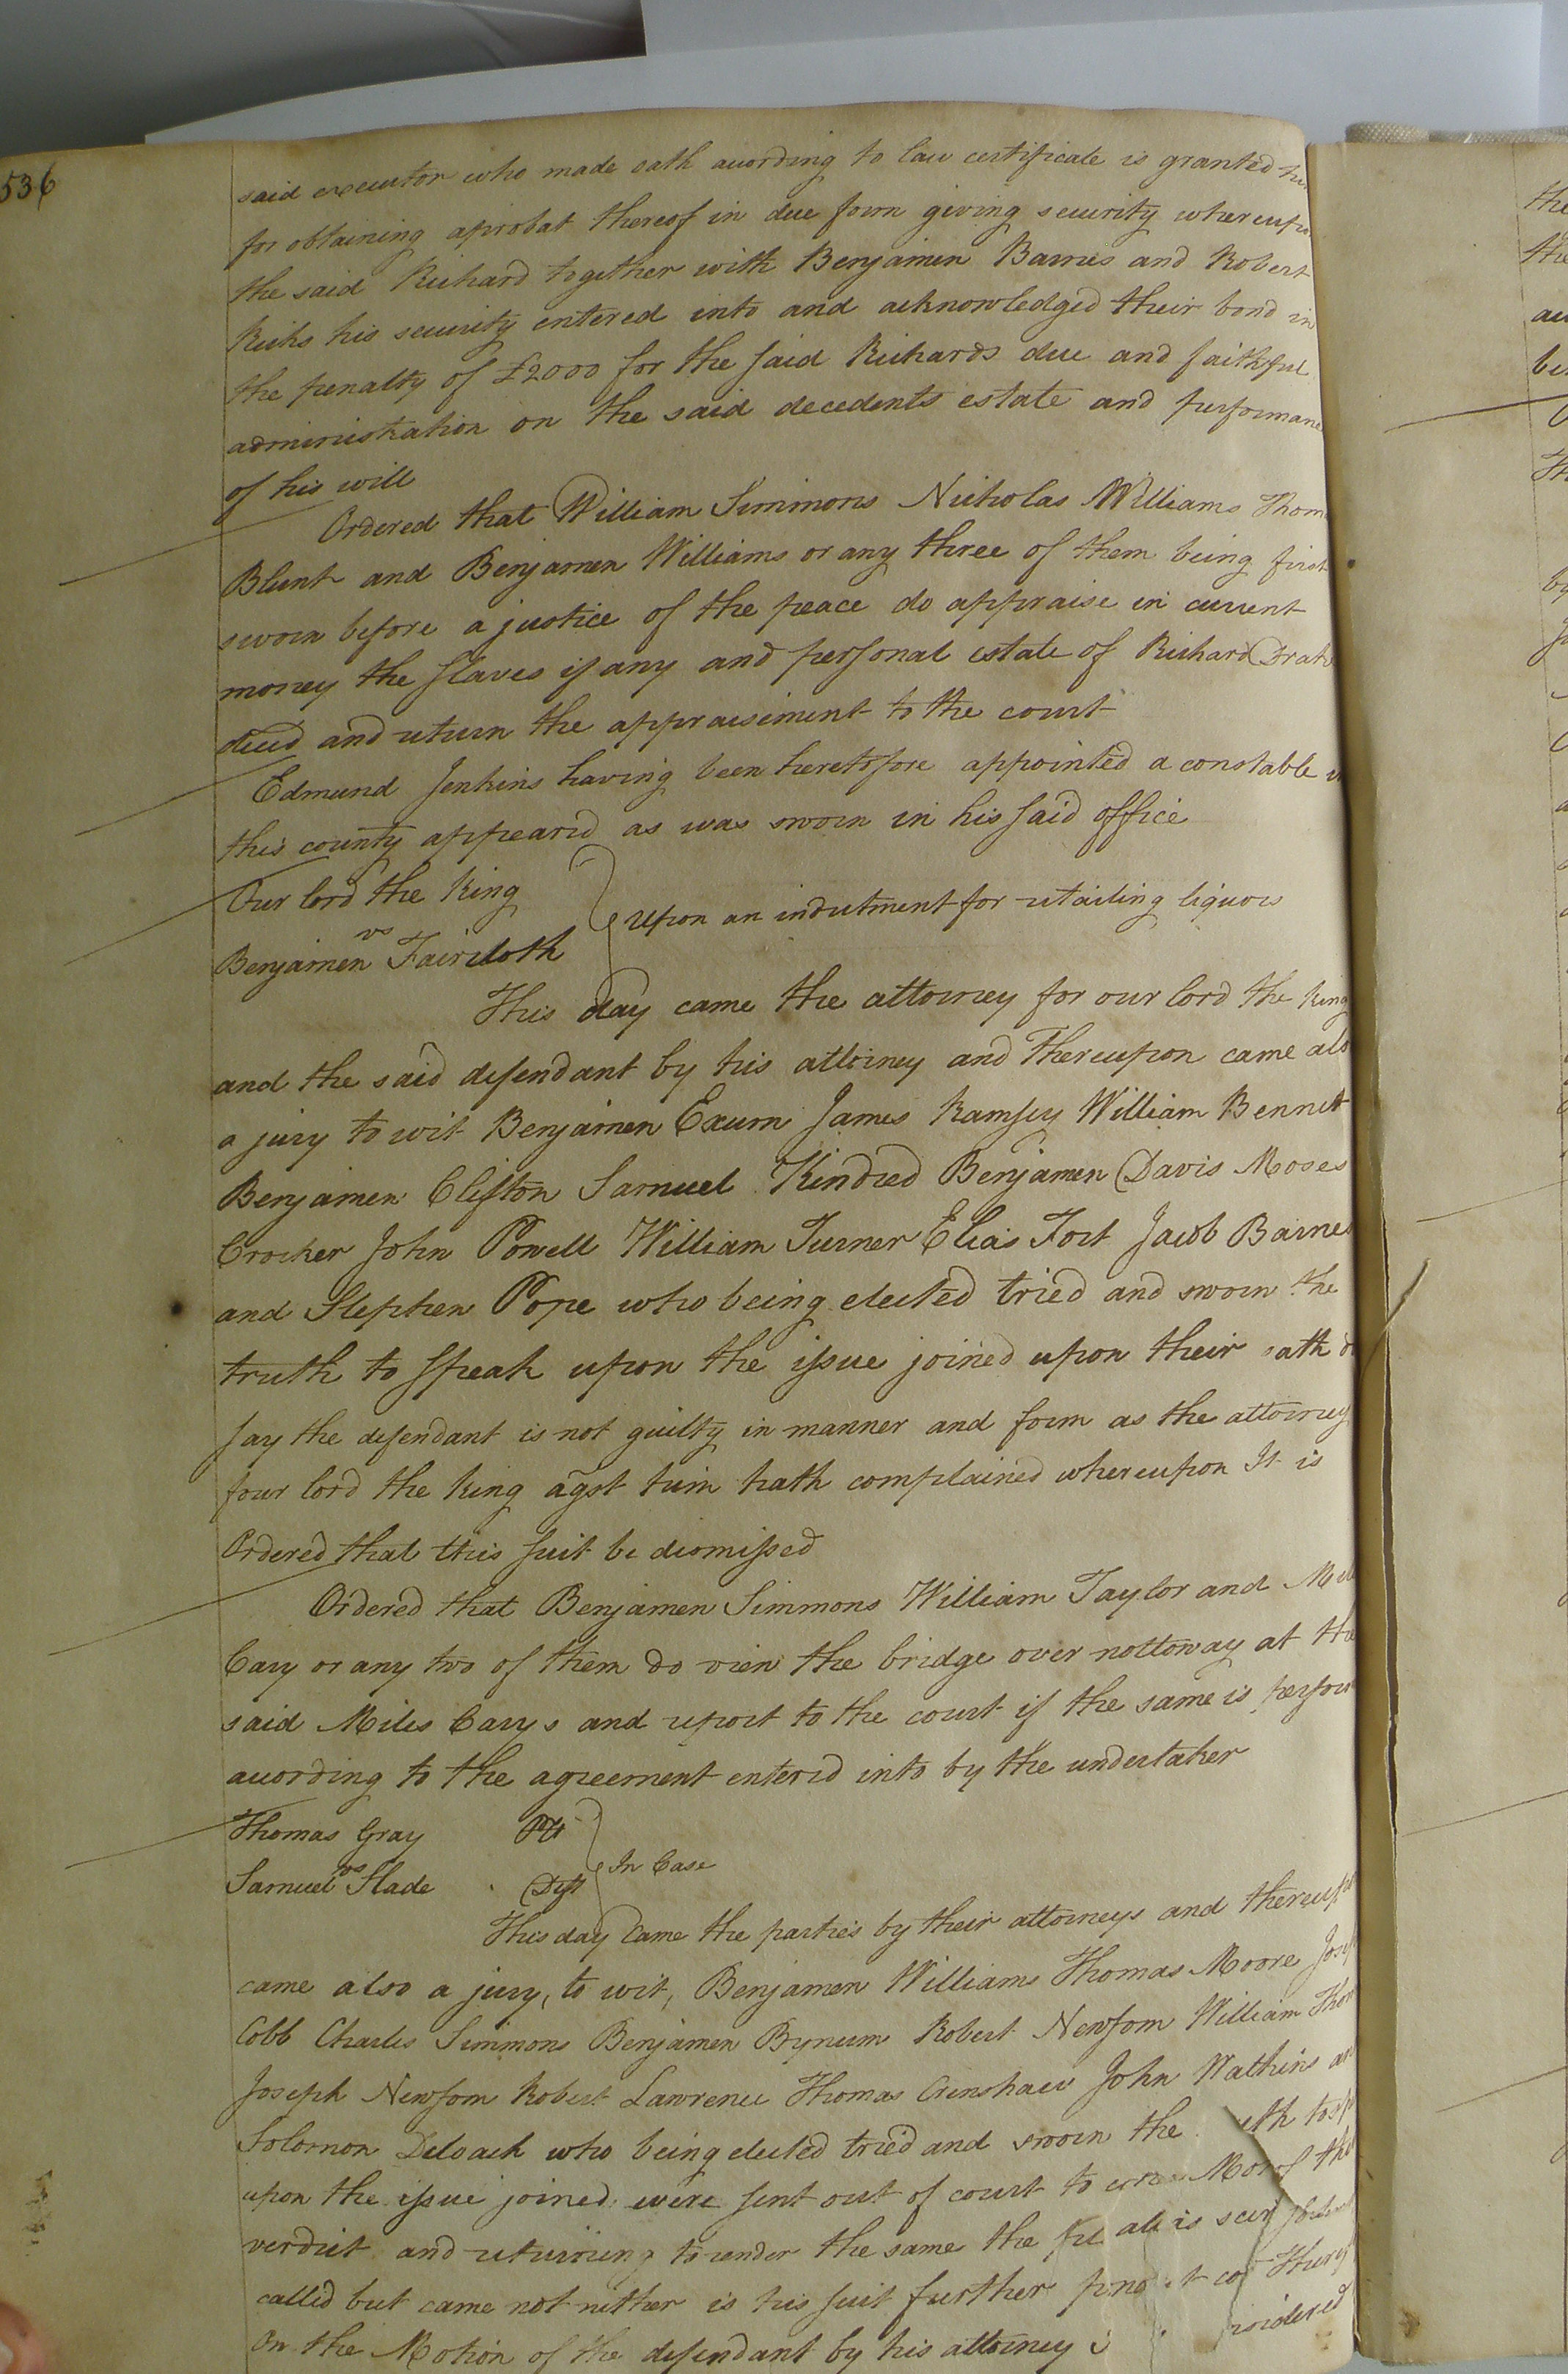 536
said executor who made oath auording to law certificate is granted
for obtaining aprobat thereof in due form giving security whereupo
the said Richard together with Benjamen Barnes and Robert
Ricks his security entered into and acknowledged their bond in
the penalty of £2000 for the said Richards due and faithful
administration on the said decedents estate and performane
of his will
Ordered that William Simmons Nicholas Williams Thom
Blunt and Benjamen Williams or any three of them being first
sworn before a justice of the peace do appraise in current
money the slaves if any and personal estate of Richard Drake
deced and return the appraisement to the court
Edmund Jenkins having been heretofore appointed a constable
this county appeared as was sworn in his said office
Our lord the King
vs
Benjamen Faircloth
Upon an indictment for retailing liquors
This day came the attorney for our lord the king
and the said defendant by his attorney and Thereupon came also
a jury to wit Benjamen Exum James Ramsey William Bennett
Benjamen Clifton Samuel Kindred Benjamen Davis Moses
Crocker John Powell William Turner Elias Fort Jacob Barnes
and Stephen Pope who being elected tried and sworn the
truth to speak upon the issue joined upon their oath do
say the defendant is not guilty in manner and form as the attorney
four lord the king agst him hath complained whereupon It is
Ordered that this suit be dismissed
Ordered that Benjamen Simmons William Taylor and
Cary or any two of them do view the bridge over nottoway at the
said Miles Carys and report to the court if the same is perfor
auording to the agreement entered into by the undertaker
Thomas Gray Plt
vs
Samuel Slade Deft
In Case
This day Came the parties by their attorneys and thereupo
came also a jury, to wit, Benjamen Williams Thomas Moore Jose
Cobb Charles Simmons Benjamen Bynum Robert Newsom William Thom
Joseph Newsom Robert Lawrence Thomas Crenshaw John Watkins an
Solomon Deloach who being elected tried and sworn the uth to sp
upon the issue joined were sent out of court to of the
verdict and returning to render the same the
called but came not nither is his suit further
On the Motion of the defendant by his attorney